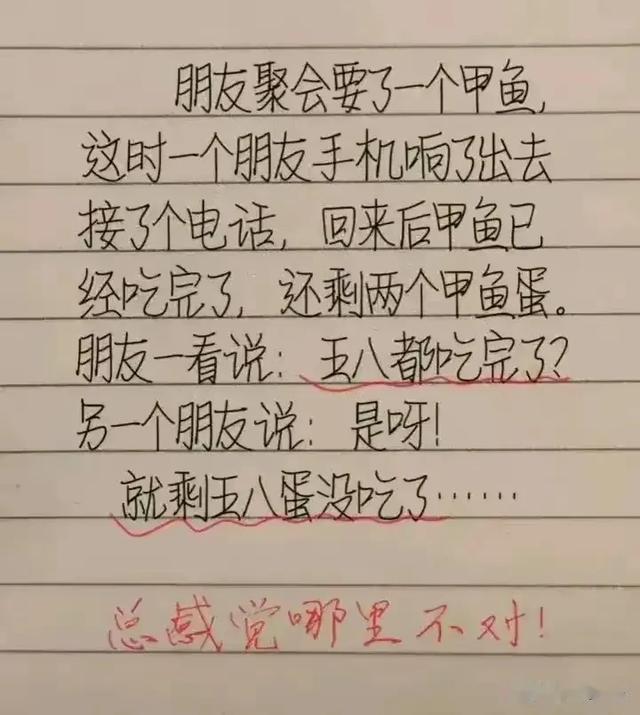 朋友聚会要了一个甲鱼,
这时一个朋友手机响了出去
接了个电话, 回来后甲鱼已
经吃完了, 还剩两个甲鱼蛋。
朋友一看说: 王八都吃完了?
另一个朋友说: 是呀!
就剩王八蛋没吃了……
总感觉哪里不对!